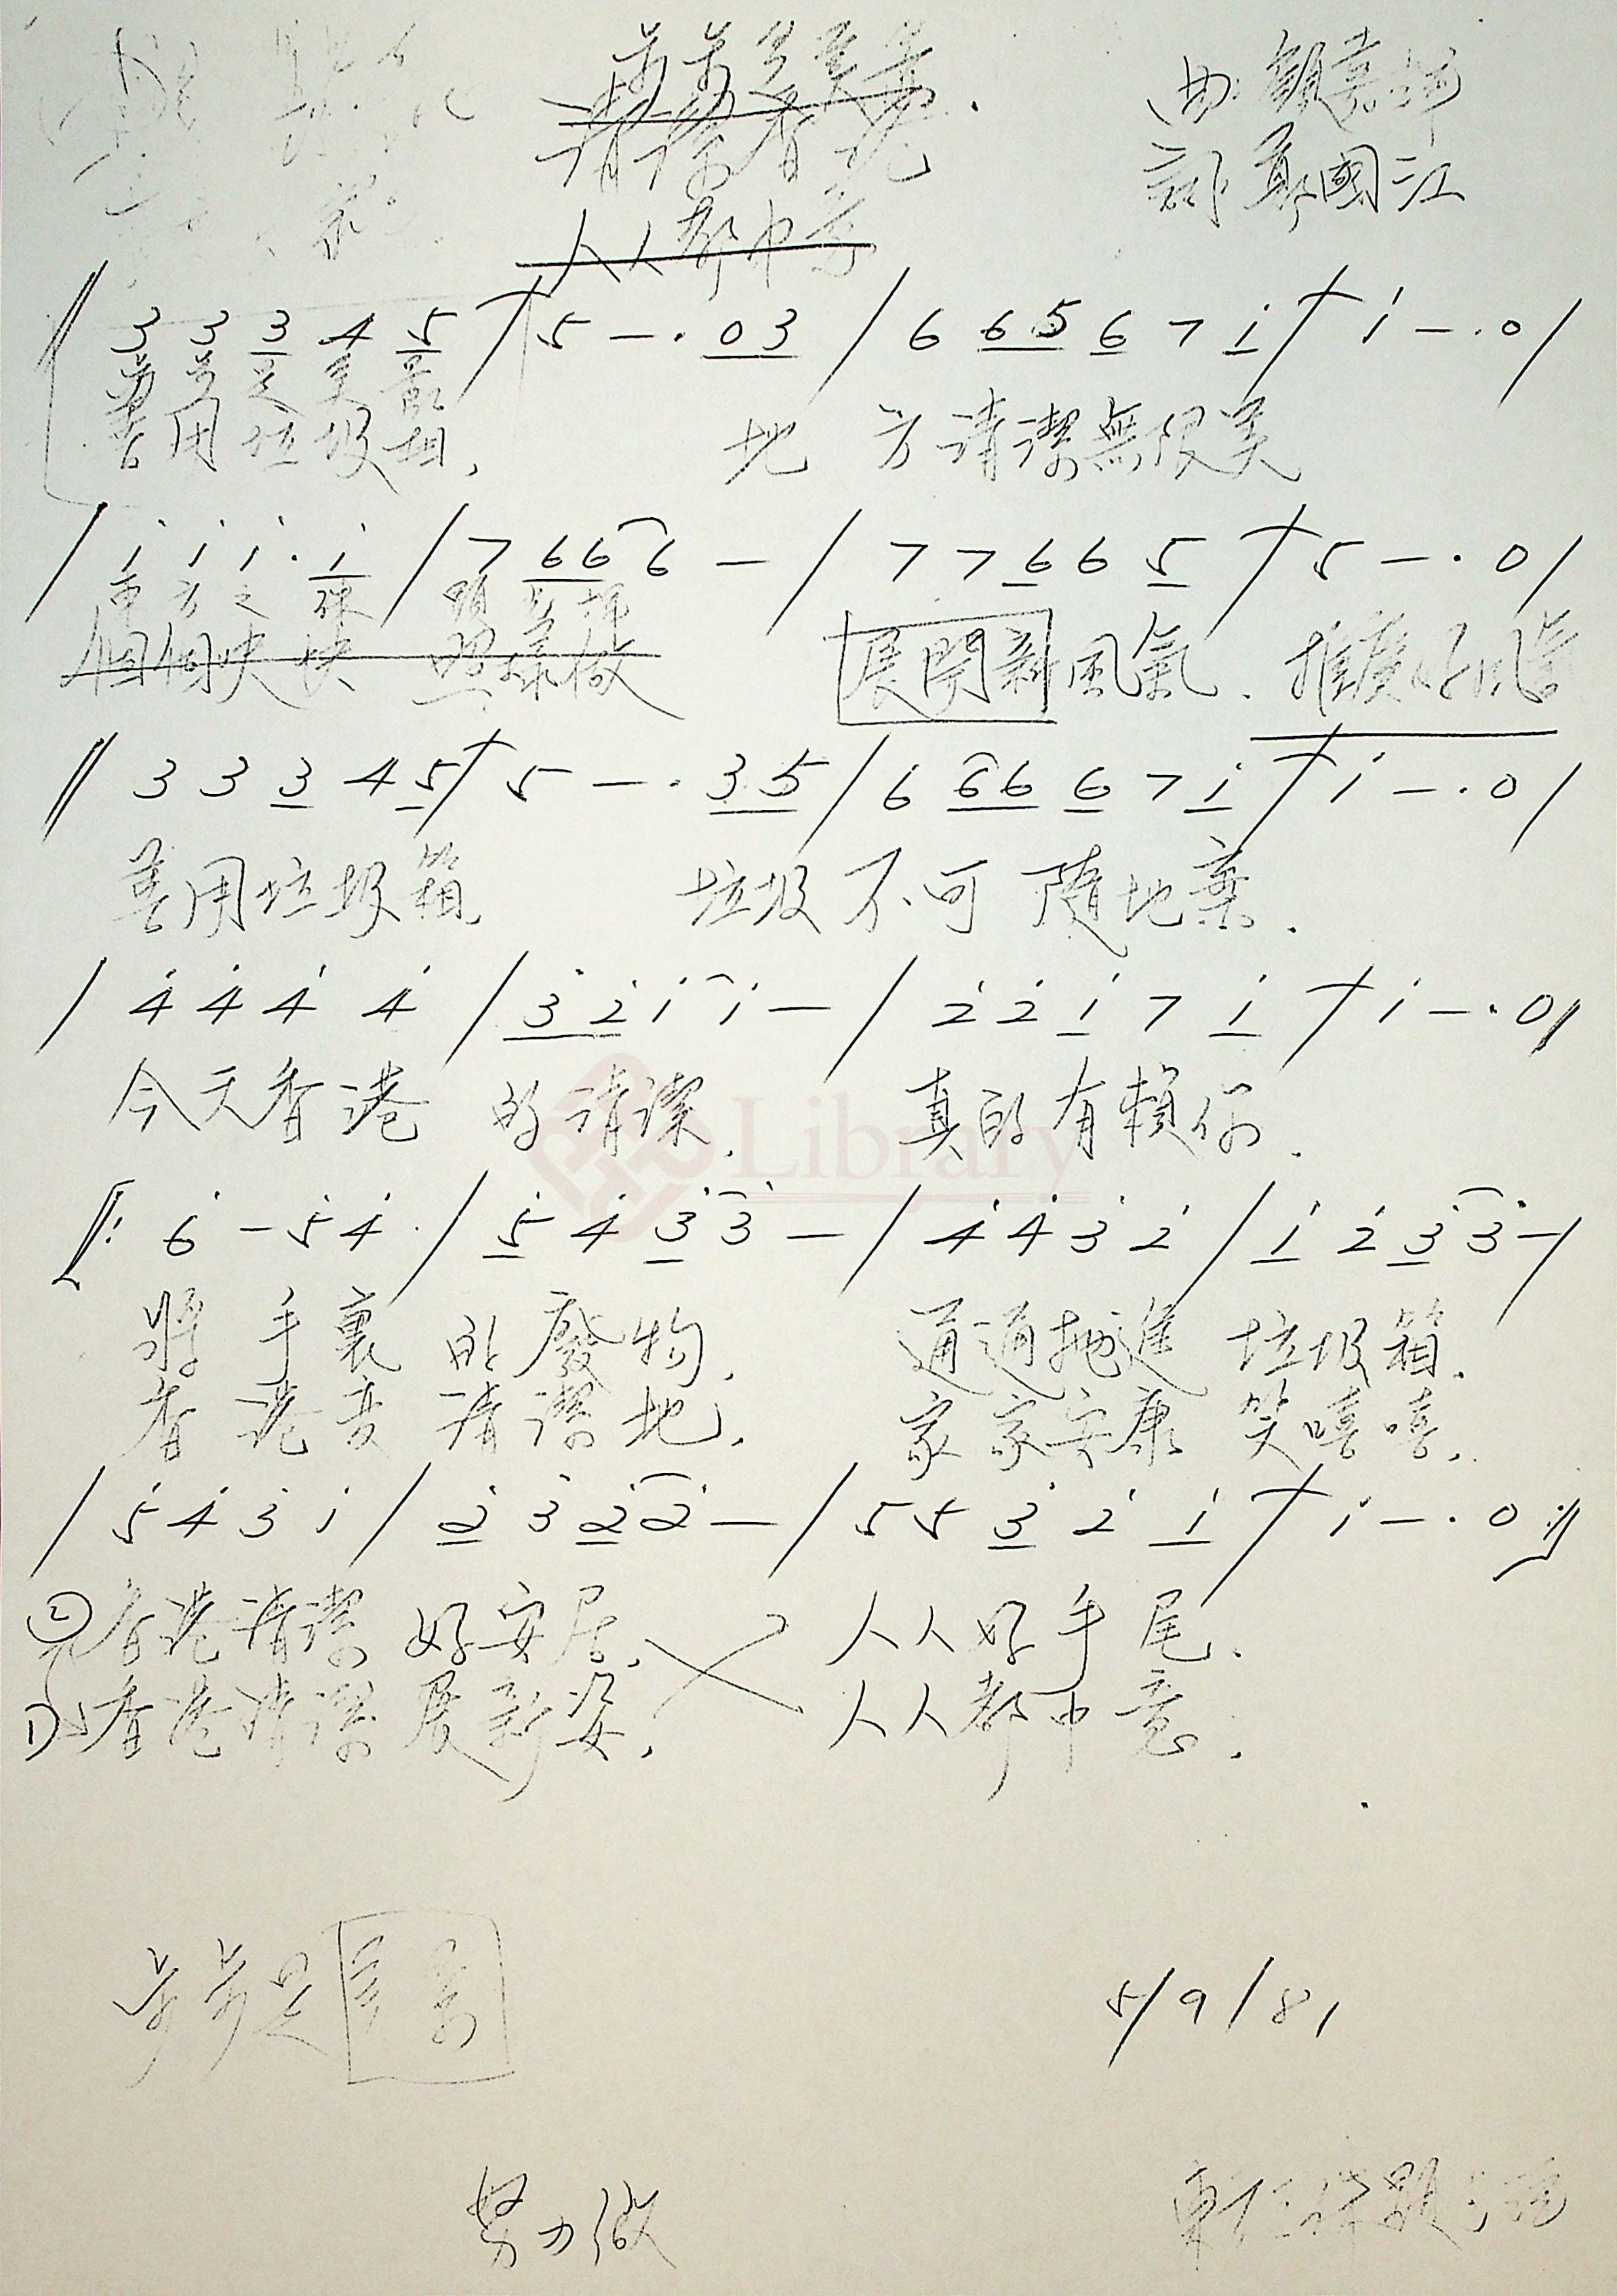 芳芳是美景
清潔香港
人人都中意
曲:顧嘉煇
詞:鄭國江
3 3 3 4 5 / 5 — · 0 3 / 6 6 5 6 7 i / i — · 0 /
善用垃圾箱, 地方清潔無限美
/ i i i · i / 7 6 6 6 — / 7 7 6 6 5 / 5 — · 0 /
東方之珠
個個快快 照樣做 展開新風氣. 推廣好風氣
// 3 3 3 4 5 / 5 — · 3 5 / 6 6 6 6 7 i / i — · 0 /
善用垃圾箱, 垃圾不可隨地棄.
/ 4 4 4 4 / 3 2 i i — / 2 2 i 7 i / i — · 0 //
今天香港 的清潔, 真的有賴你.
Library
//: 6 — 5 4 / 5 4 3 3 — / 4 4 3 2 / i 2 3 3 — /
將手裏 的廢物, 通通拋進 垃圾箱.
香港變 清潔地, 家家安康 笑嘻嘻.
/ 5 4 3 i / 2 3 2 2 — / 5 5 3 2 i / i — · 0 ://
② 香港清潔 好安居, 人人好手尾.
1) 香港清潔 展新姿, 人人都中意.
芳芳是美景
5/9/81
努力做